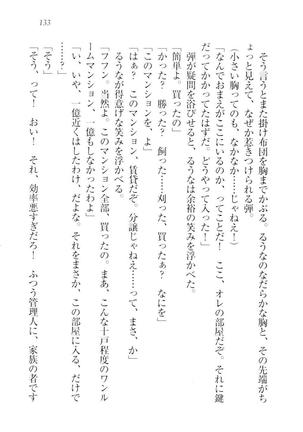 133
そう言うとまた掛け布団を胸までかぶる、るうなのなだらかな胸と、その先端がち
ょっと見えて、なぜか惹きつけられる弾。
(小さい胸ってのも、なかなか……じゃねえ！)
「なんでおまえがここにいるのか、ってことだ！　ここ、オレの部屋だぞ。それに鍵
だってかかってたはずだ。どうやって入った！」
弾が疑問を浴びせると、るうなは余裕の笑みを浮かべた。
「簡単よ。買ったの」
「かった？　勝った？　飼った……刈った、買ったぁ？　なにを」
「このマンションを、よ」
「はぁ？　このマンション、賃貸だぞ。分譲じゃねえ……って、まさ、か」
るうなが得意げな笑みを浮かべる。
「フフン。当然よ。このマンション全部、買ったの。まあ、こんな十戸程度のワンル
ームマンション、一億もしなかったわよ」
「い、いや、一億近くはしたわけ、だよな。それをまさか、この部屋に入る、だけで
……？」
「そう」
「そう、って！　おい！　それ、効率悪すぎだろ！　ふつう管理人に、家族の者です